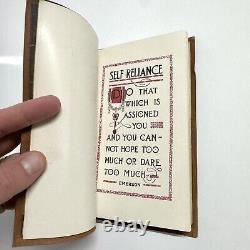 SELF RELIANCE
DO THAT
WHICH IS
ASSIGNED
YOU
AND YOU CAN-
NOT HOPE TOO
MUCH OR DARE
TOO MUCH
EMERSON
ebay